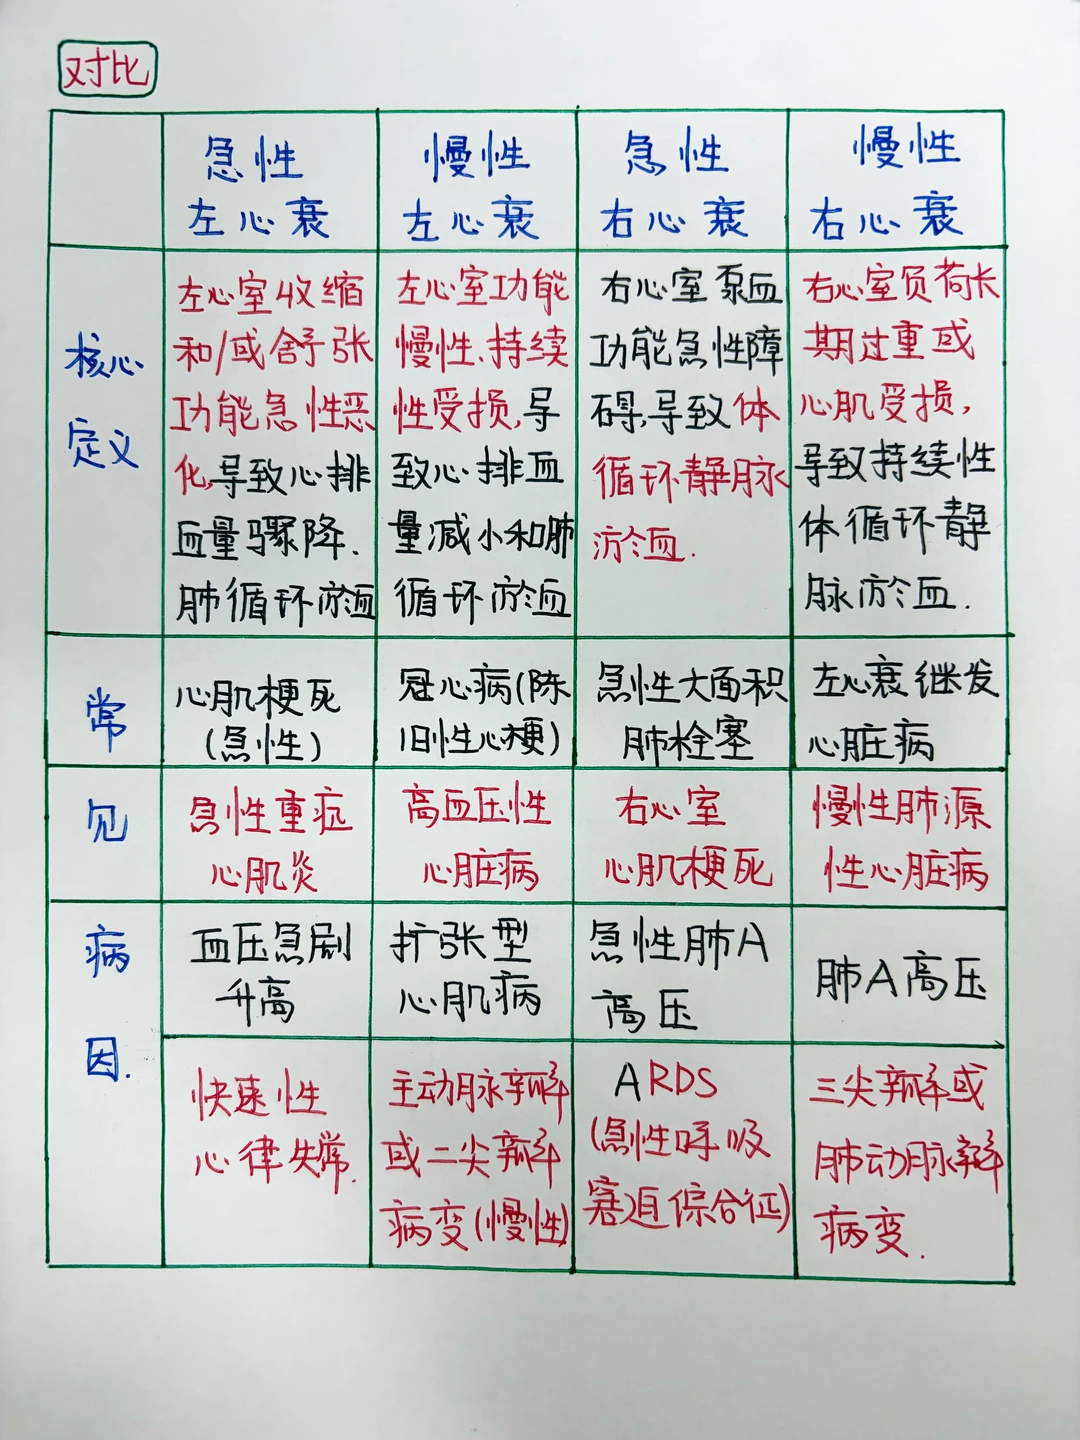 对比
急性
左心衰
慢性
左心衰
急性
右心衰
慢性
右心衰
核心
定义
左心室收缩
和/或舒张
功能急性恶
化,导致心排
血量骤降.
肺循环淤血
左心室功能
慢性、持续
性受损,导
致心排血
量减小和肺
循环淤血
右心室泵血
功能急性障
碍,导致体
循环静脉
淤血.
右心室负荷长
期过重或
心肌受损,
导致持续性
体循环静
脉淤血.
常
见
病
因.
心肌梗死
(急性)
冠心病(陈
旧性心梗)
急性大面积
肺栓塞
左心衰继发
心脏病
急性重症
心肌炎
高血压性
心脏病
右心室
心肌梗死
慢性肺源
性心脏病
血压急剧
升高
扩张型
心肌病
急性肺A
高压
肺A高压
快速性
心律失常.
主动脉瓣
或二尖瓣
病变(慢性)
ARDS
(急性呼吸
窘迫综合征)
三尖瓣或
肺动脉瓣
病变.